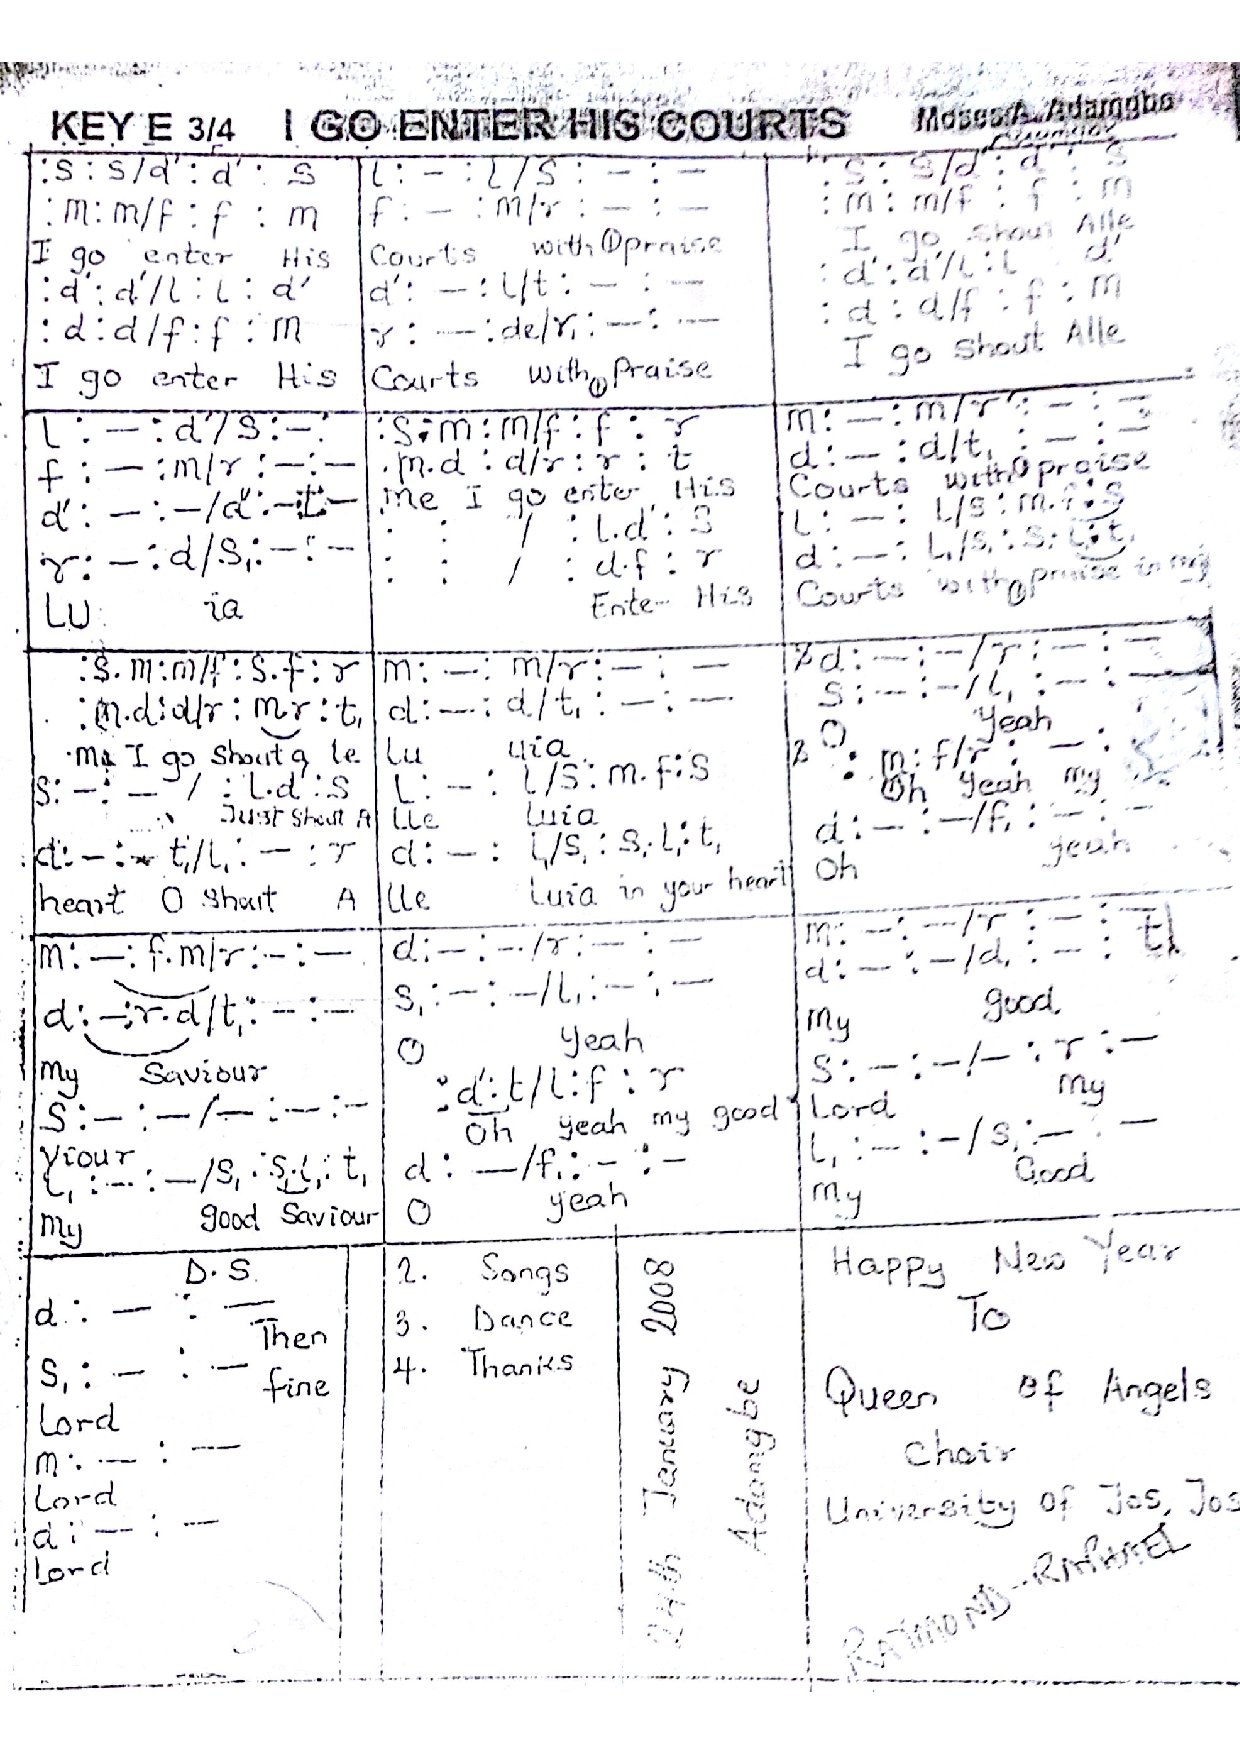 KEY E 3/4 I GO ENTER HIS COURTS Moses A. Adamgba
:s : s/d' : d' : s
:m : m/f : f : m
I go enter His
:d' : d'/l : l : d'
:d : d/f : f : m
I go enter His
l : — : l/s : — : —
f : — : m/r : — : —
Courts with ① praise
d' : — : l/t : — : —
r : — : de/r, : — : —
Courts with ① Praise
:s : s/d' : d' : s
:m : m/f : f : m
I go shout Alle
:d' : d'/l : l d'
:d : d/f : f : m
I go shout Alle
l : — : d'/s : — :
f : — : m/r : — : —
d' : — : —/d' : —
r : — : d/s, : — : —
Lu ia
:s. m : m/f : f : r
.m.d : d/r : r : t
me I go enter His
: : / : l.d' : s
: : / : d.f : r
Enter His
m : — : m/r : — : —
d : — : d/t, : — : —
Courts with ① praise
l : — : l/s : m.f : s
d : — : l,/s, : s. l, : t,
Courts with ① praise in my
:s. m : m/f : s.f : r
:m.d : d/r : m r : t,
me I go shout a le
s : — : — / : l.d : s
Just Shout A
d : — : — t,/l, : — : r
heart O shout A
m : — : m/r : — : —
d : — : d/t, : — : —
lu uia
l : — : l/s : m. f : s
lle luia
d : — : l,/s, : s,. l, : t,
lle luia in your heart
d : — : —/r : — : —
s : — : —/l, : — : —
O Yeah
: m : f/r : — :
Oh Yeah my
d : — : —/f, : — : —
Oh yeah
m : — : f.m/r : — : —
d : — : r.d/t, : — : —
my Saviour
s : — : —/— : — : —
viour
l, : — : —/s, : s,.l, : t,
my good Saviour
d : — : —/r : — : —
s, : — : —/l, : — : —
O Yeah
: d' : t/l : f : r
Oh yeah my good
d : —/f, : — : —
O yeah
m : — : —/r : — : —
d : — : —/d, : — : t|
my good
s : — : —/— : r : —
Lord my
l, : — : —/s, : — : —
my Good
D.S.
d : — : —
Then
s, : — : —
fine
Lord
m : — : —
Lord
d : — : —
Lord
2. Songs
3. Dance
4. Thanks
24th January 2008
Adamgbe
Happy New Year
To
Queen of Angels
Choir
University of Jos, Jos
RAYMOND RAPHAEL